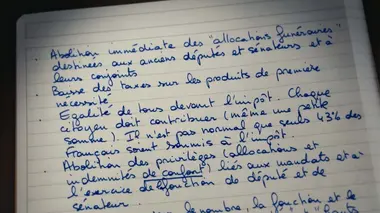 . Abolition immédiate des "allocations funéraires"
destinées aux anciens députés et sénateurs et à
leurs conjoints
. Baisse des taxes sur les produits de première
nécessité
. Egalité de tous devant l'impôt. Chaque
citoyen doit contribuer (même une petite
somme). Il n'est pas normal que seuls 43% des
Français soient soumis à l'impôt.
. Abolition des privilèges (allocations et
indemnités de confort) liés aux mandats et à
l'exercice de la fonction de député et de
sénateur.
le nombre, la fonction et le